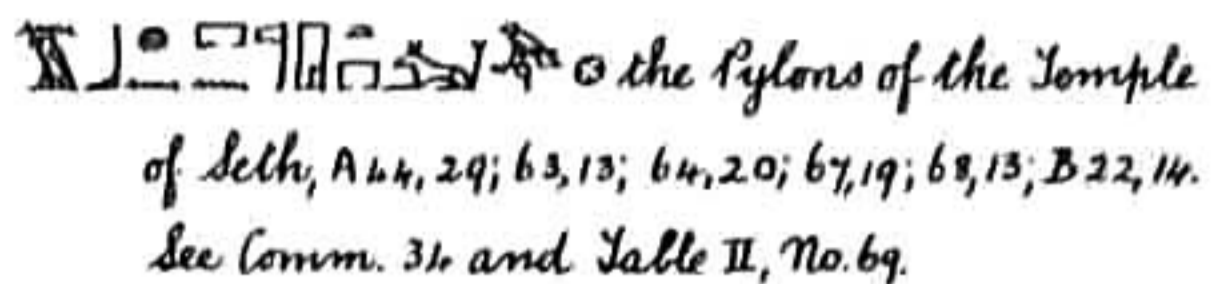 the Pylons of the Temple
of Seth, A 44, 29; 63,13; 64,20; 67,19; 68,13; B 22, 14.
See Comm. 34 and Table II, No. 69.